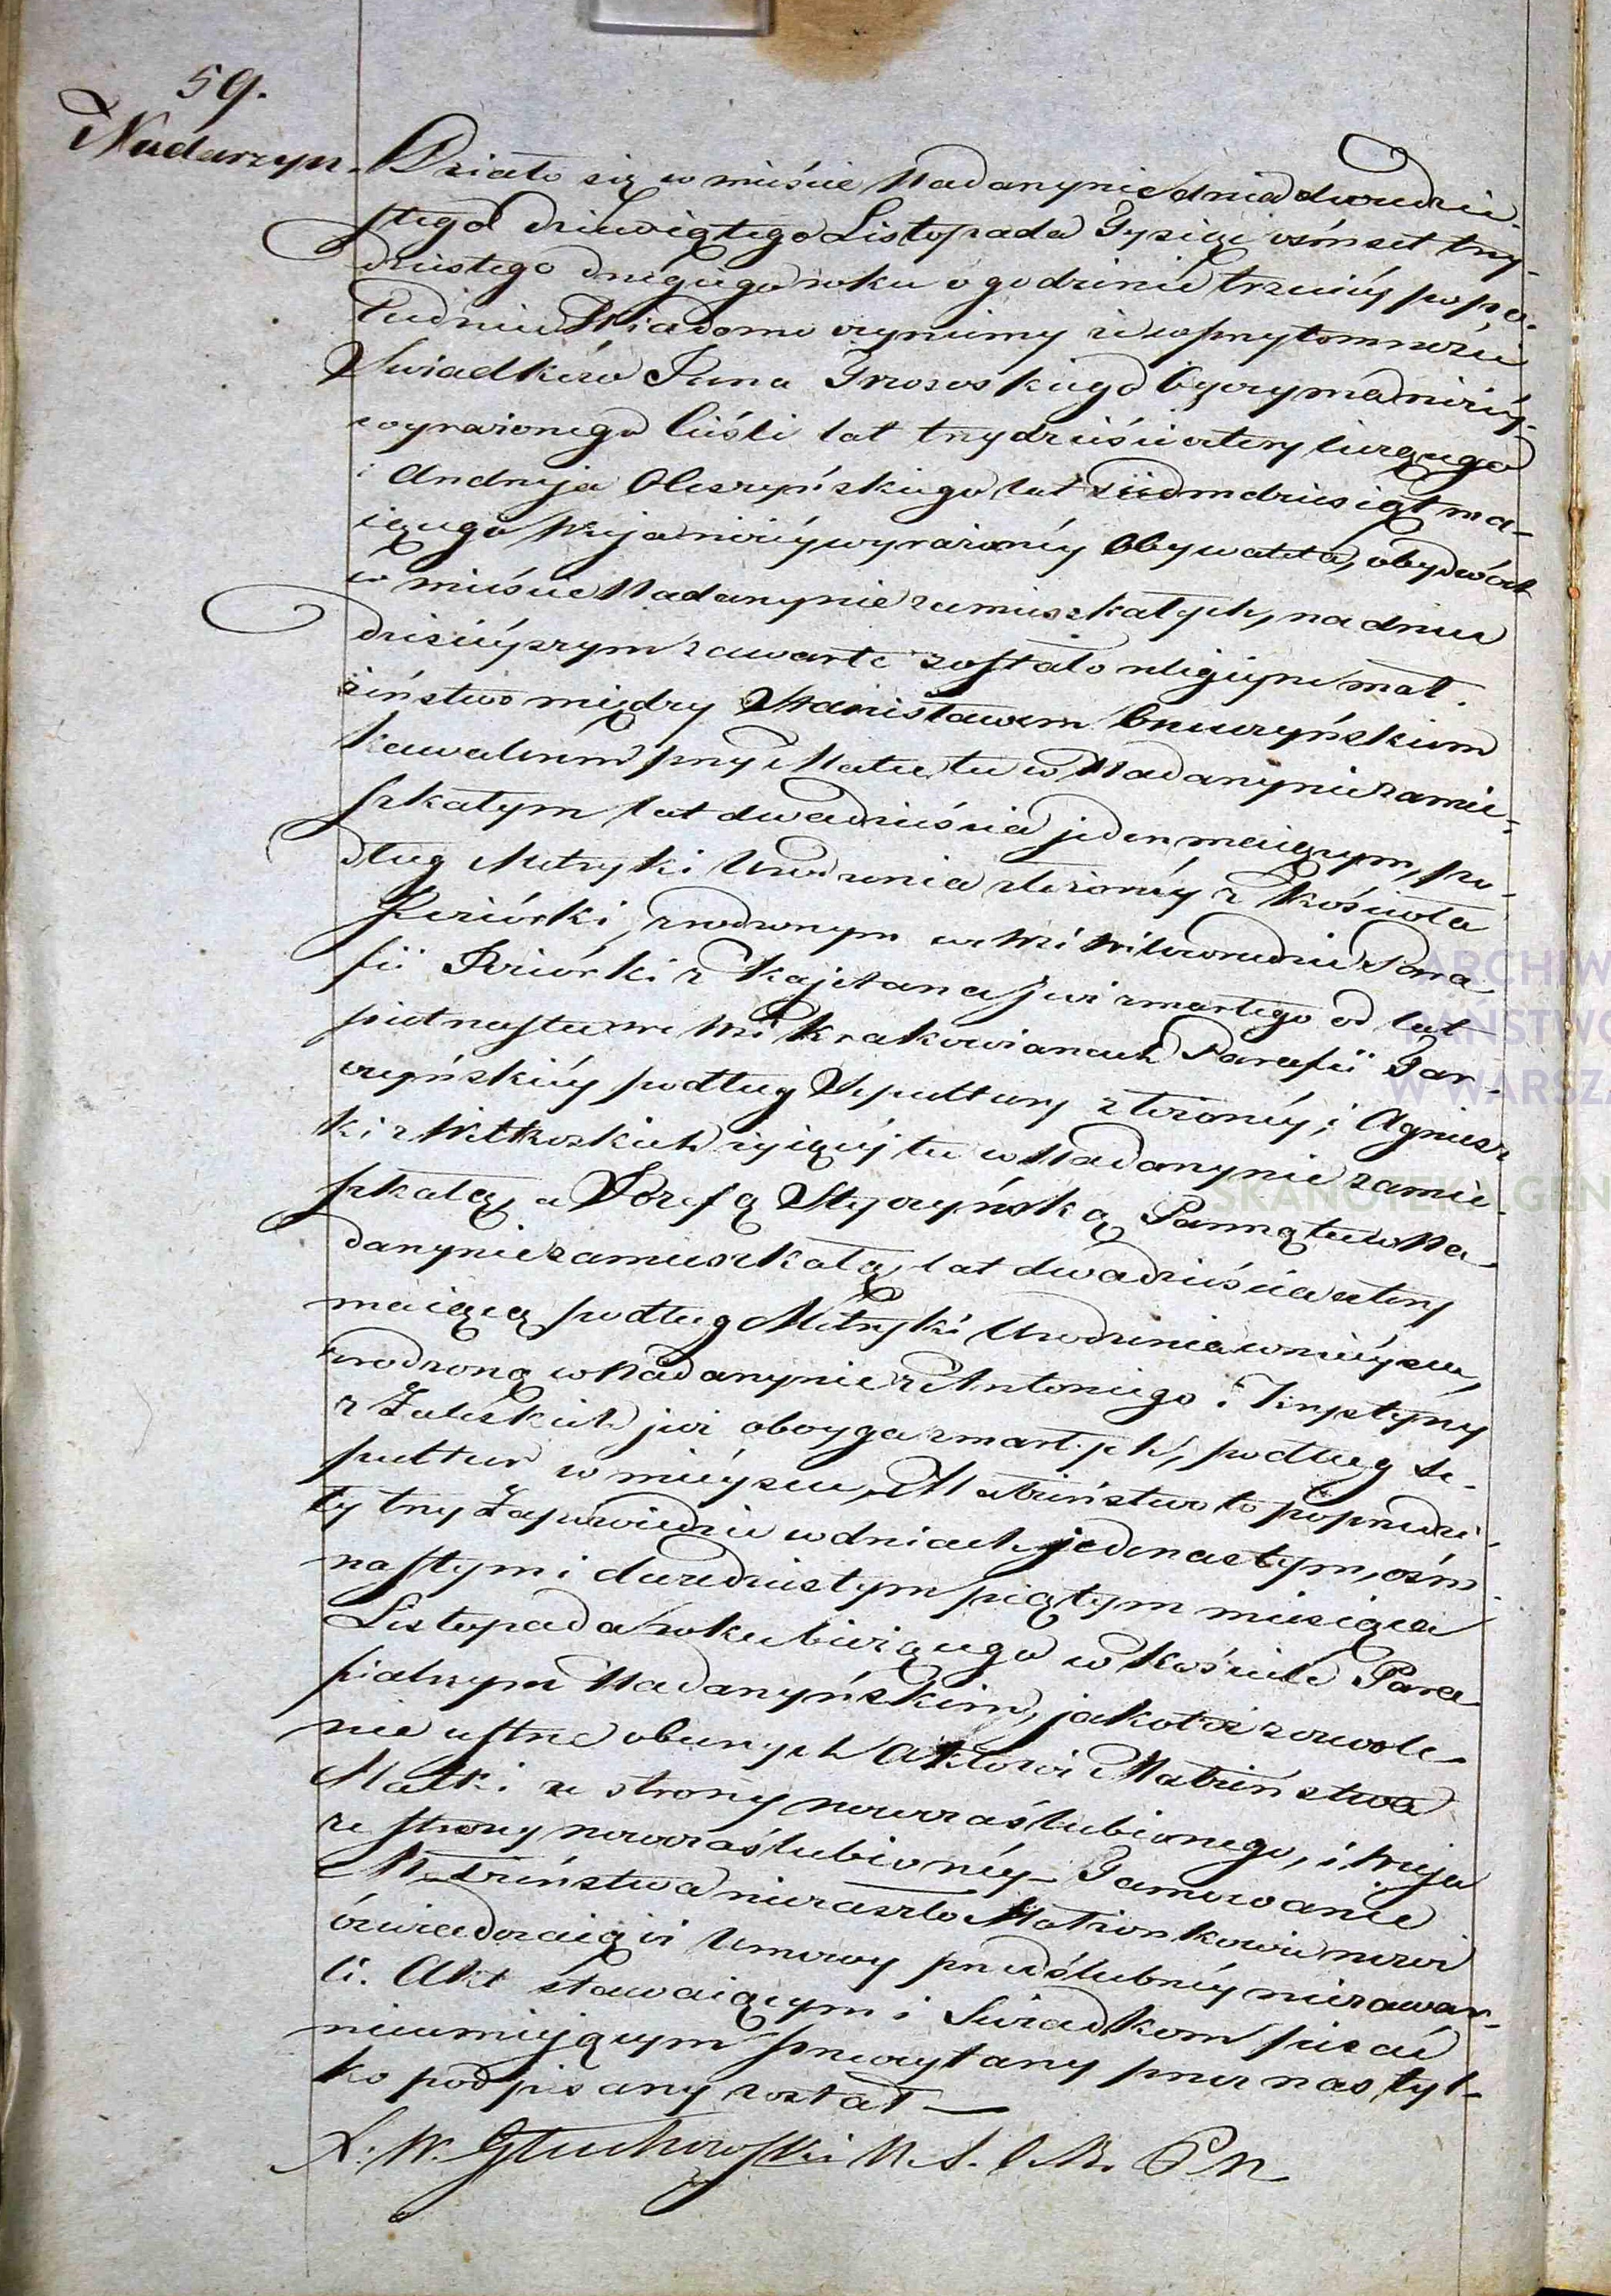 59.
Nadarzyn.
Działo się w mieście Nadarzynie dnia dwudzie-
stego dziewiątego Listopada Tysiąc ośmset trzy-
dziestego drugiego roku o godzinie trzeciéy po po-
łudniu Wiadomo czynimy że w przytomności
Swiadków Jana Trzososkiego niżéy
wyrażonego Cieśli lat trzydzieści cztery liczącego
i Andrzeja Olszyńskiego lat siedmdziesiąt ma-
iącego Wuja niżéy wyrażonéy Obywatela, obydwóch
w mieście Nadarzynie zamieszkałych, na dniu
dzisiéyszym zawarte zostało religijne mał-
żeństwo między Stanisławem
Kawalerem przy Matce tu w Nadarzynie zamie-
szkałym lat dwadzieścia jeden maiącym, po-
dług Metryki Urodzenia złożonéy z Kościoła
Jeziórki, zrodzonym we Wsi Wilczorudzie Para
fii Jeziórki z Kajetana już zmarłego od lat
pietnastu we Wsi Krakowianach Parafii Tar-
czyńskiéy podług Sepultury złożonéy, i Agniesz
ki z Witkoskich żyjącéj tu w Nadarzynie zamie-
szkałéy, a Józefą Styczyńską Panną tu w Na-
darzynie zamieszkałą, lat dwadzieścia cztery
maiącą podług Metryki Urodzenia w mieyscu,
zrodzoną w Nadarzynie z Antoniego i Krystyny
z Zaleskich już oboyga zmarłych, podług Se-
pultur w mieyscu, Małżeństwo to poprzedzi-
ły trzy Zapowiedzie w dniach jedenastym, ośm-
nastym i dwudziestym piątym miesiąca
Listopada roku bieżącego w Kościele Para
fialnym Nadarzyńskim, jakoteż zezwole-
nie ustne obecnych Aktowi Małżeństwa
Matki ze strony nowozaślubionego, i Wuja
ze strony nowozaślubionéy_ Tamowanie
Małżeństwa niezaszło Małżonkowie nowi
oświadczaią iż Umowy przedślubnéy niezawar-
li. Akt stawaiącym i Swiadkom pisać
nieumiejącym przeczytany przez nas tyl-
ko podpisany został_
X. W. Głuchowski U. S. C. M. P. N.
ARCHIW
PAŃSTWO
W WARSZA
SKANOTEKA GEN